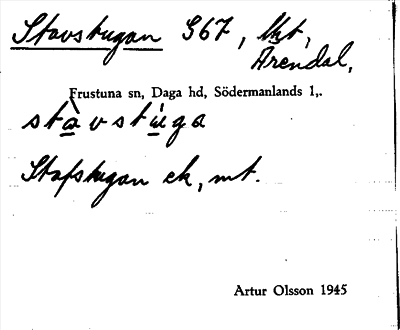 Stavstugan 967, lht,
Arendal,
Frustuna sn, Daga hd, Södermanlands l,.
stàvstúga
Stafstugan ek, mt.
Artur Olsson 1945